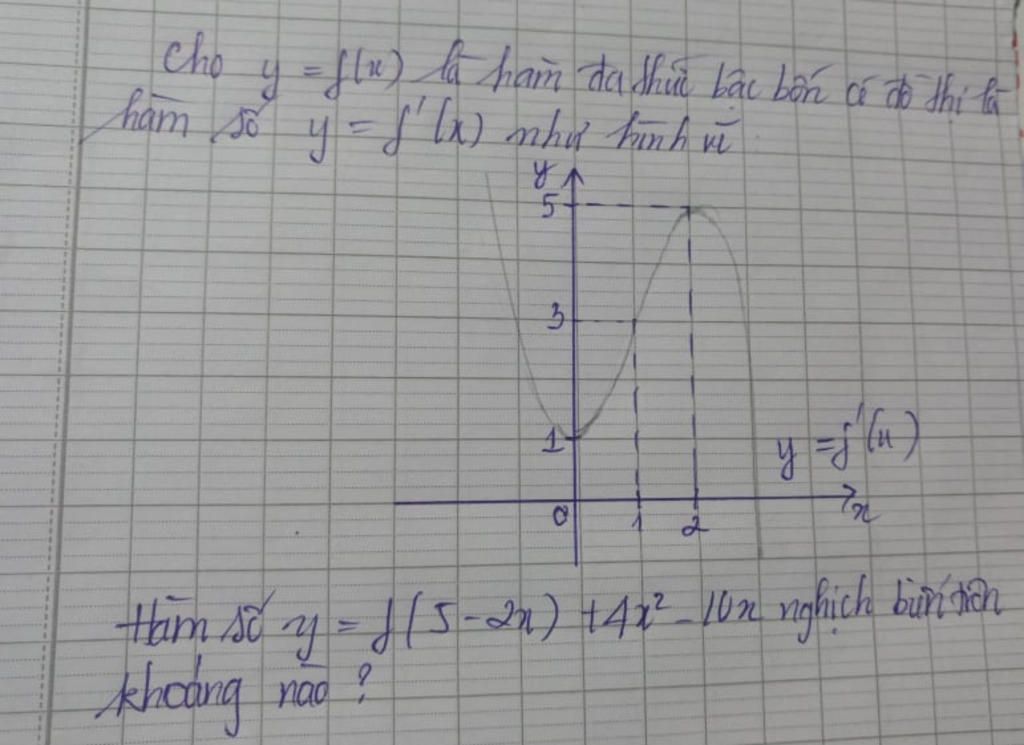 Cho y = f(x) là hàm đa thức bậc bốn có đồ thị là
hàm số y = f'(x) như hình vẽ
y
5
3
1
y = f'(x)
0 1 2 x
Hàm số y = f(5 - 2x) + 4x² - 10x nghịch biến trên
khoảng nào ?